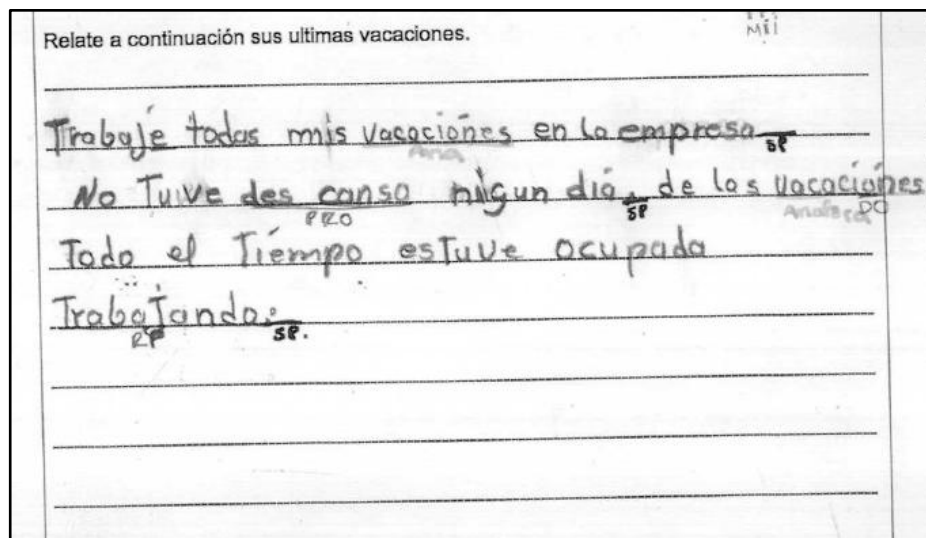 Mil
Relate a continuación sus ultimas vacaciones.
Trabaje todas mis vacaciones en la empresa
SP
Ana
No Tuive des canso nigun dia. de las vacaciones
PRO
SP
DO
Todo el Tiempo esTuve ocupada
TrabaJando.
RP
SP.